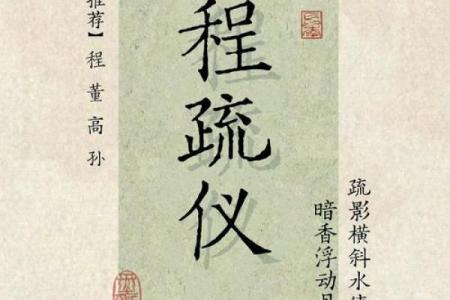 推荐】程董高孙
程疏仪
疏影横斜水
暗香浮动